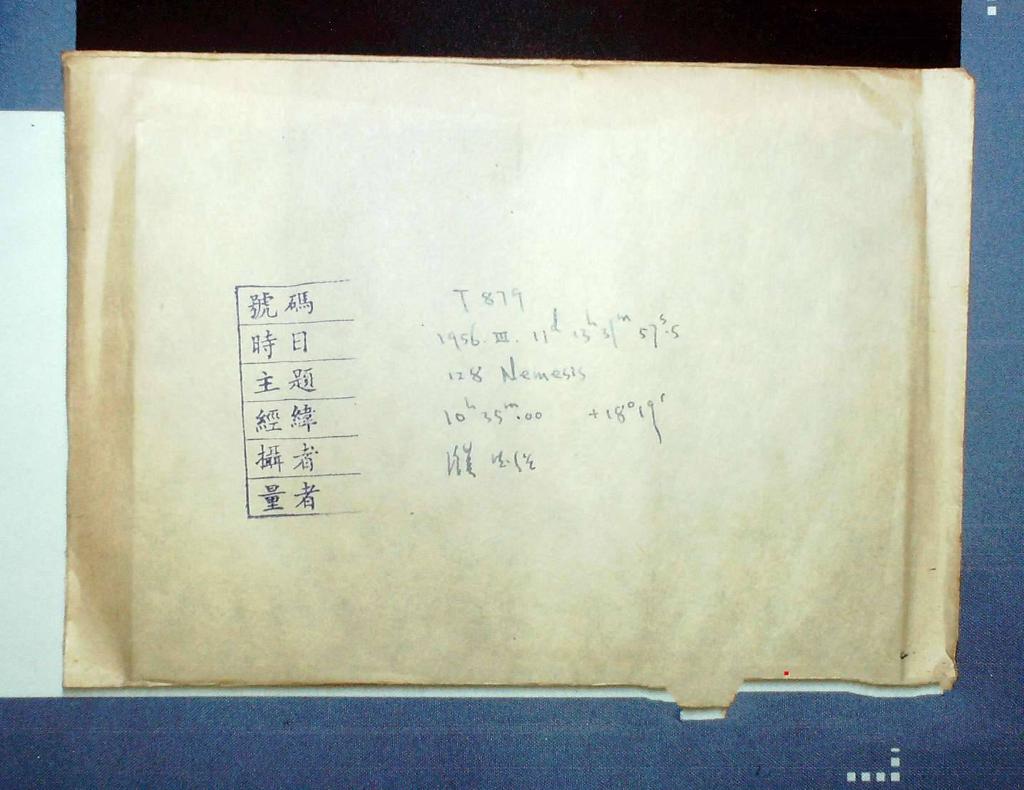 號碼 T 879
時日 1956. III. 11ᵈ 13ʰ 31ᵐ 57ˢ.5
主題 128 Nemesis
經緯 10ʰ 35ᵐ.00 +18°19'
攝者
量者